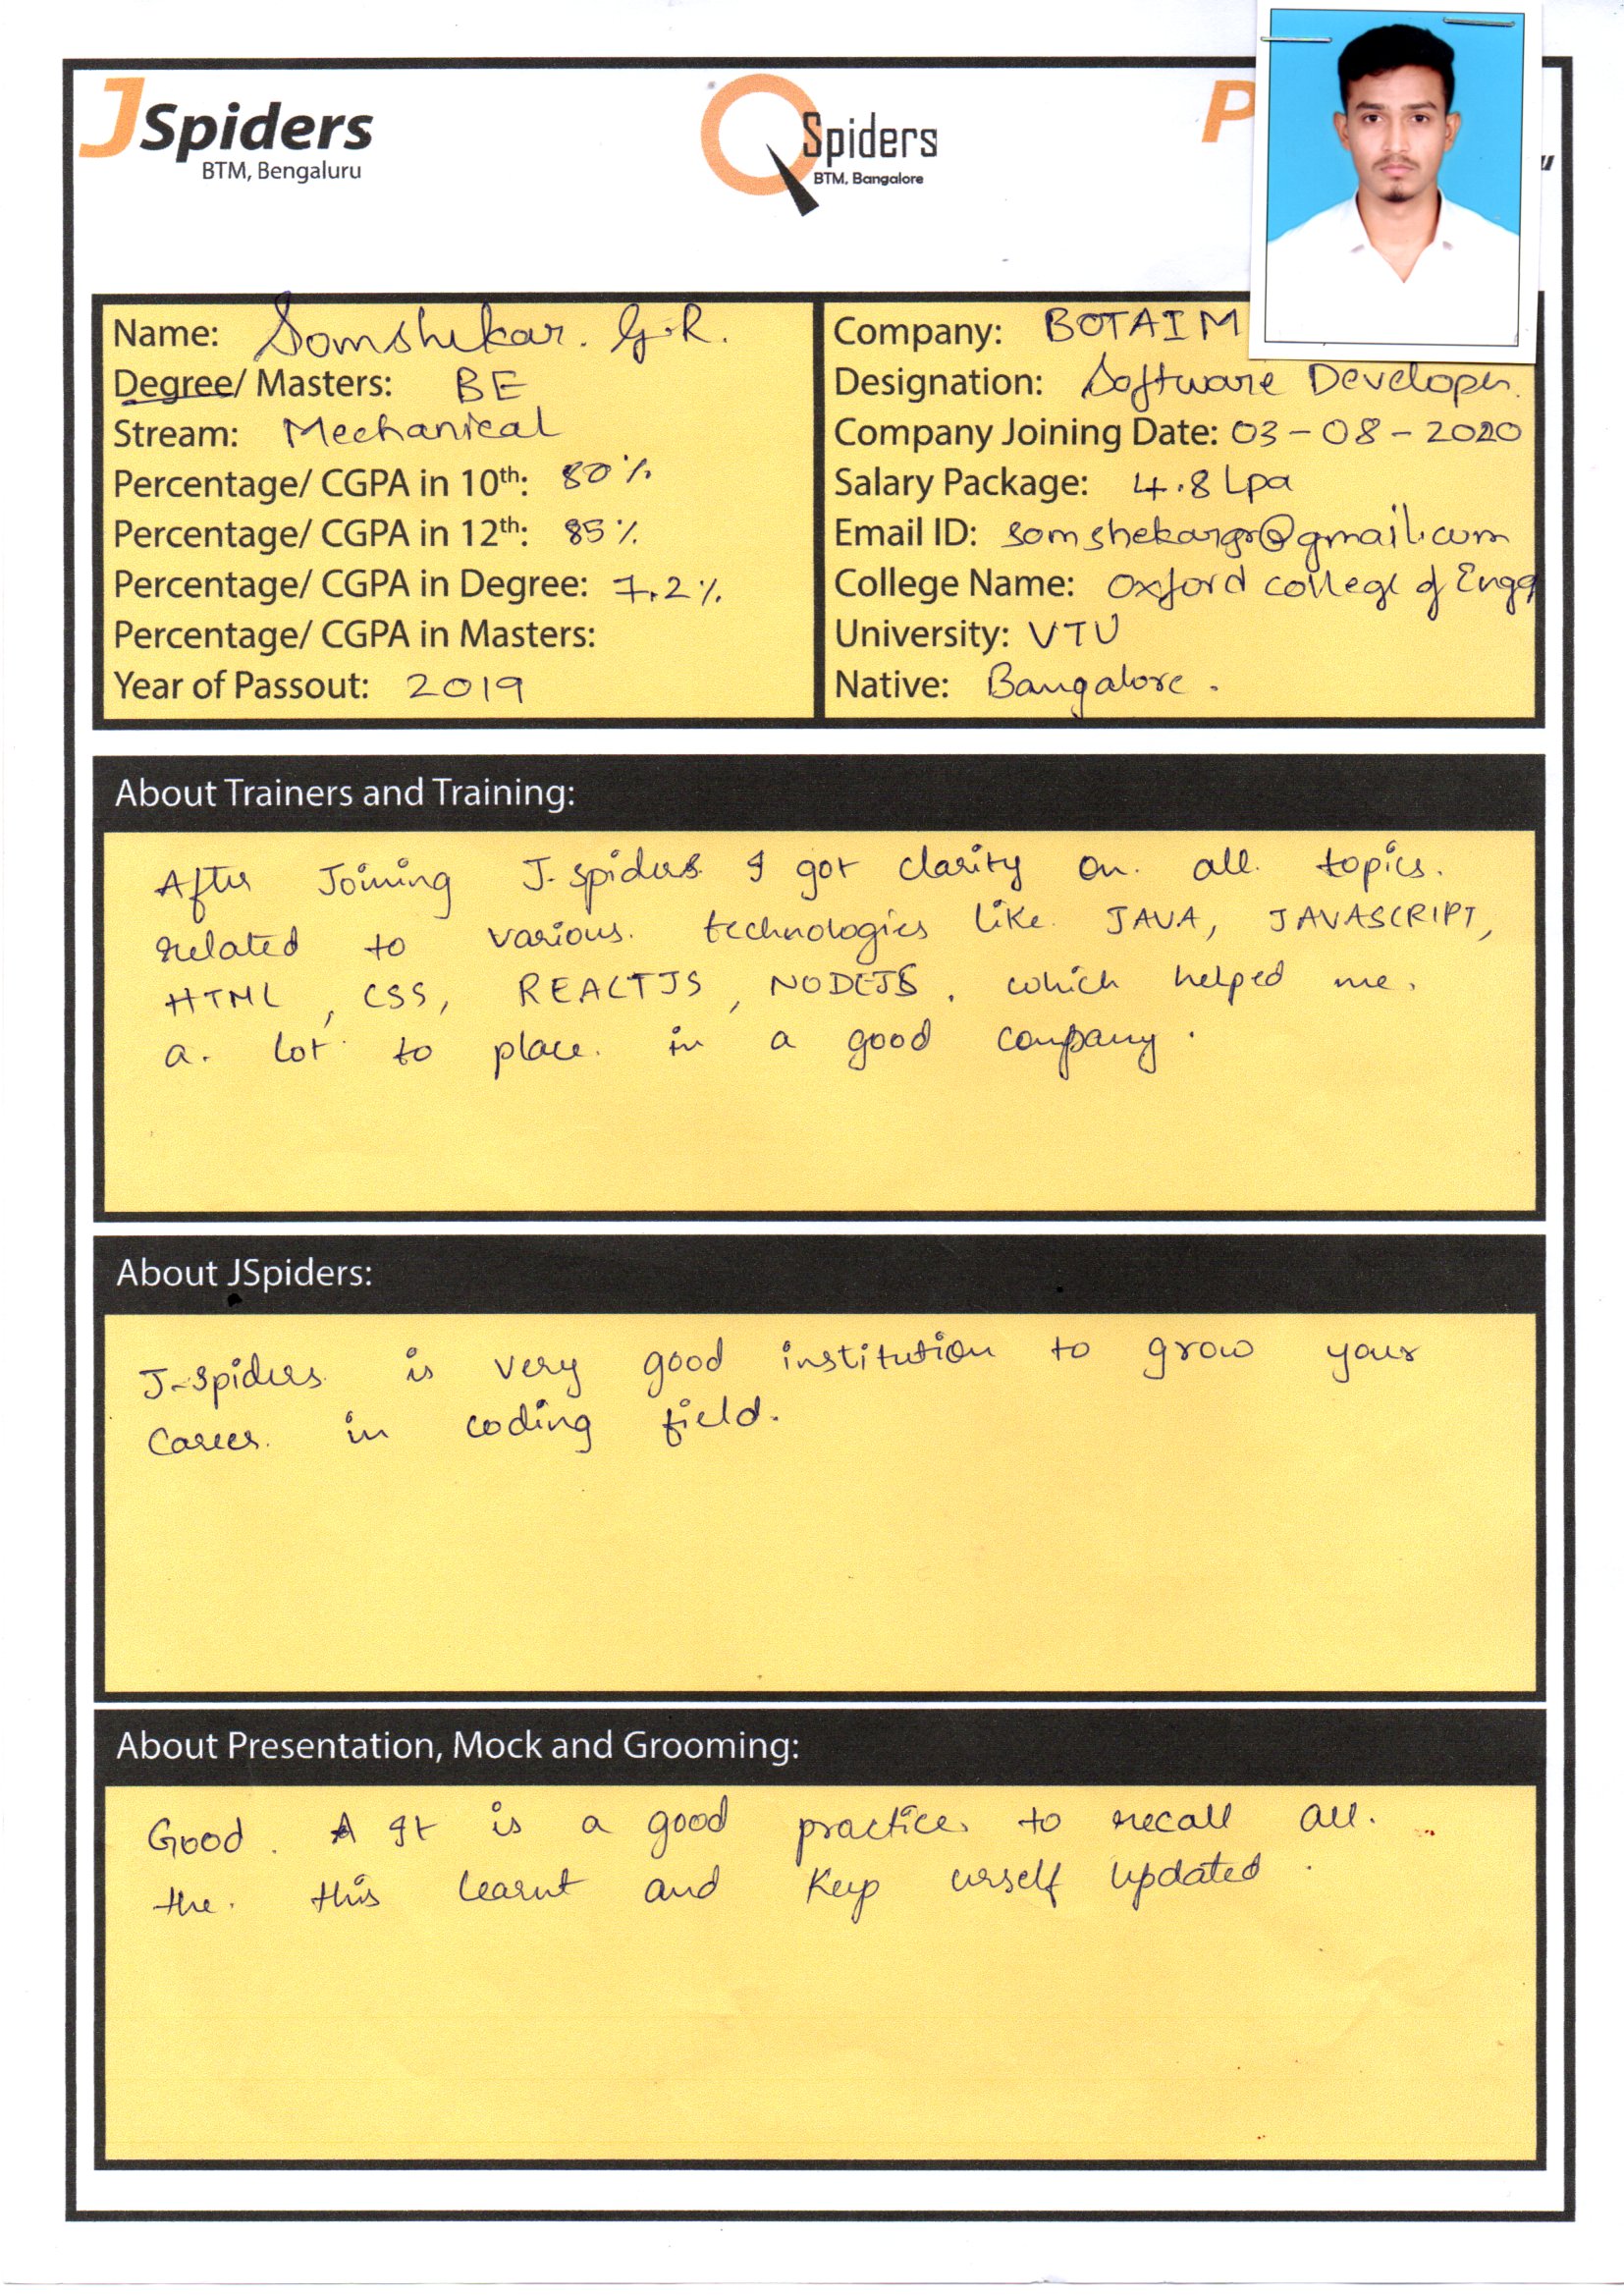 JSpiders
BTM, Bengaluru
QSpiders
BTM, Bangalore
P
Name: Somshekar. G.R.
Degree/ Masters: BE
Stream: Mechanical
Percentage/ CGPA in 10th: 80%
Percentage/ CGPA in 12th: 85%
Percentage/ CGPA in Degree: 7.2%
Percentage/ CGPA in Masters:
Year of Passout: 2019
Company: BOTAIM
Designation: Software Developer.
Company Joining Date: 03-08-2020
Salary Package: 4.8 Lpa
Email ID: somshekargr@gmail.com
College Name: Oxford college of Engg
University: VTU
Native: Bangalore.
About Trainers and Training:
After Joining J-spiders I got clarity on. all. topics.
related to various. technologies like. JAVA, JAVASCRIPT,
HTML, CSS, REACTJS, NODEJS. which helped me.
a. lot to place. in a good company.
About JSpiders:
J-spiders. is very good institution to grow your
Career. in coding field.
About Presentation, Mock and Grooming:
Good. A It is a good practice. to recall all.
the. this learnt and Keep urself updated.